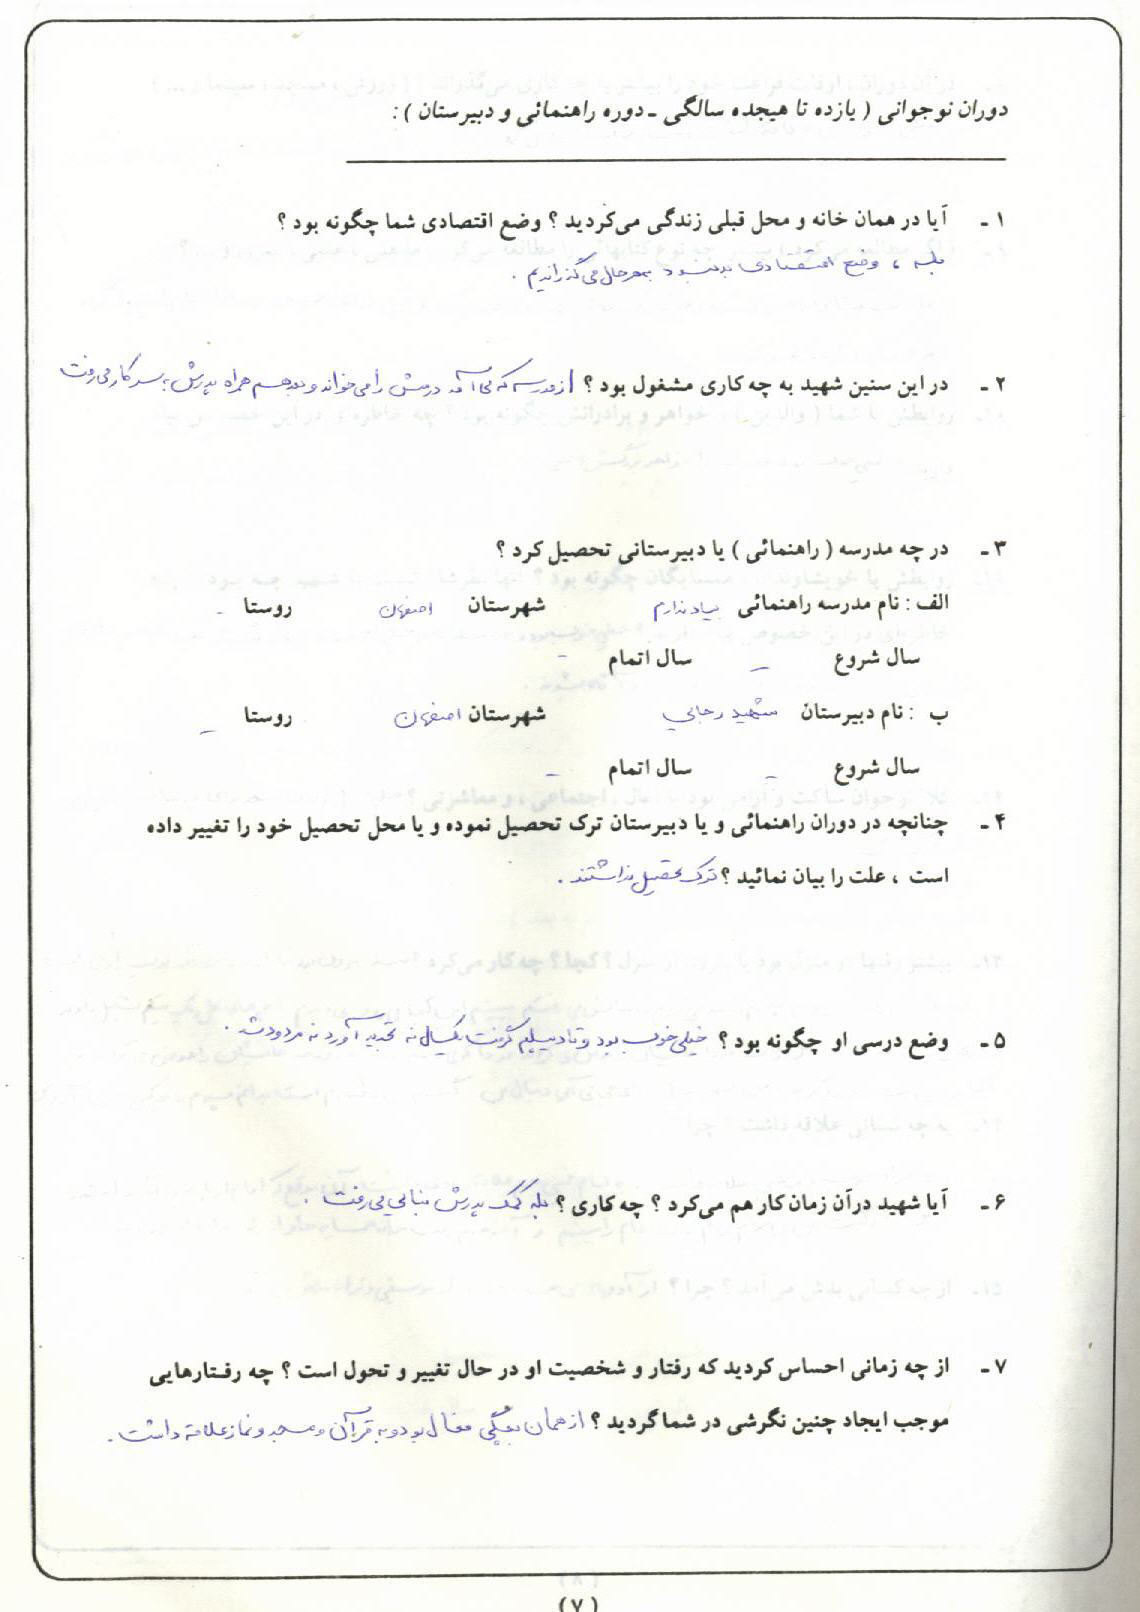 دوران نوجوانی ( یازده تا هیجده سالگی ـ دوره راهنمائی و دبیرستان ) :
۱ ـ آیا در همان خانه و محل قبلی زندگی می‌کردید ؟ وضع اقتصادی شما چگونه بود ؟
بله ، وضع اقتصادی بد نبود بهرحال می‌گذراندیم .
۲ ـ در این سنین شهید به چه کاری مشغول بود ؟ از مدرسه که می‌آمد درسش را می‌خواند و بعد هم همراه پدرش به سر کار می‌رفت
۳ ـ در چه مدرسه ( راهنمائی ) یا دبیرستانی تحصیل کرد ؟
الف : نام مدرسه راهنمائی بیاد ندارم شهرستان اصفهان روستا -
سال شروع - سال اتمام -
ب : نام دبیرستان شهید رجایی شهرستان اصفهان روستا -
سال شروع - سال اتمام -
۴ ـ چنانچه در دوران راهنمائی و یا دبیرستان ترک تحصیل نموده و یا محل تحصیل خود را تغییر داده
است ، علت را بیان نمائید ؟ ترک تحصیل نداشتند .
۵ ـ وضع درسی او چگونه بود ؟ خیلی خوب بود و تا دیپلم گرفت یکسال نه تجدید آورد نه مردود شد .
۶ ـ آیا شهید درآن زمان کار هم می‌کرد ؟ چه کاری ؟ بله کمک پدرش بنایی می‌رفت .
۷ ـ از چه زمانی احساس کردید که رفتار و شخصیت او در حال تغییر و تحول است ؟ چه رفتارهایی
موجب ایجاد چنین نگرشی در شما گردید ؟ از همان بچگی فعال بود و به قرآن و مسجد و نماز علاقه داشت .
(۷)